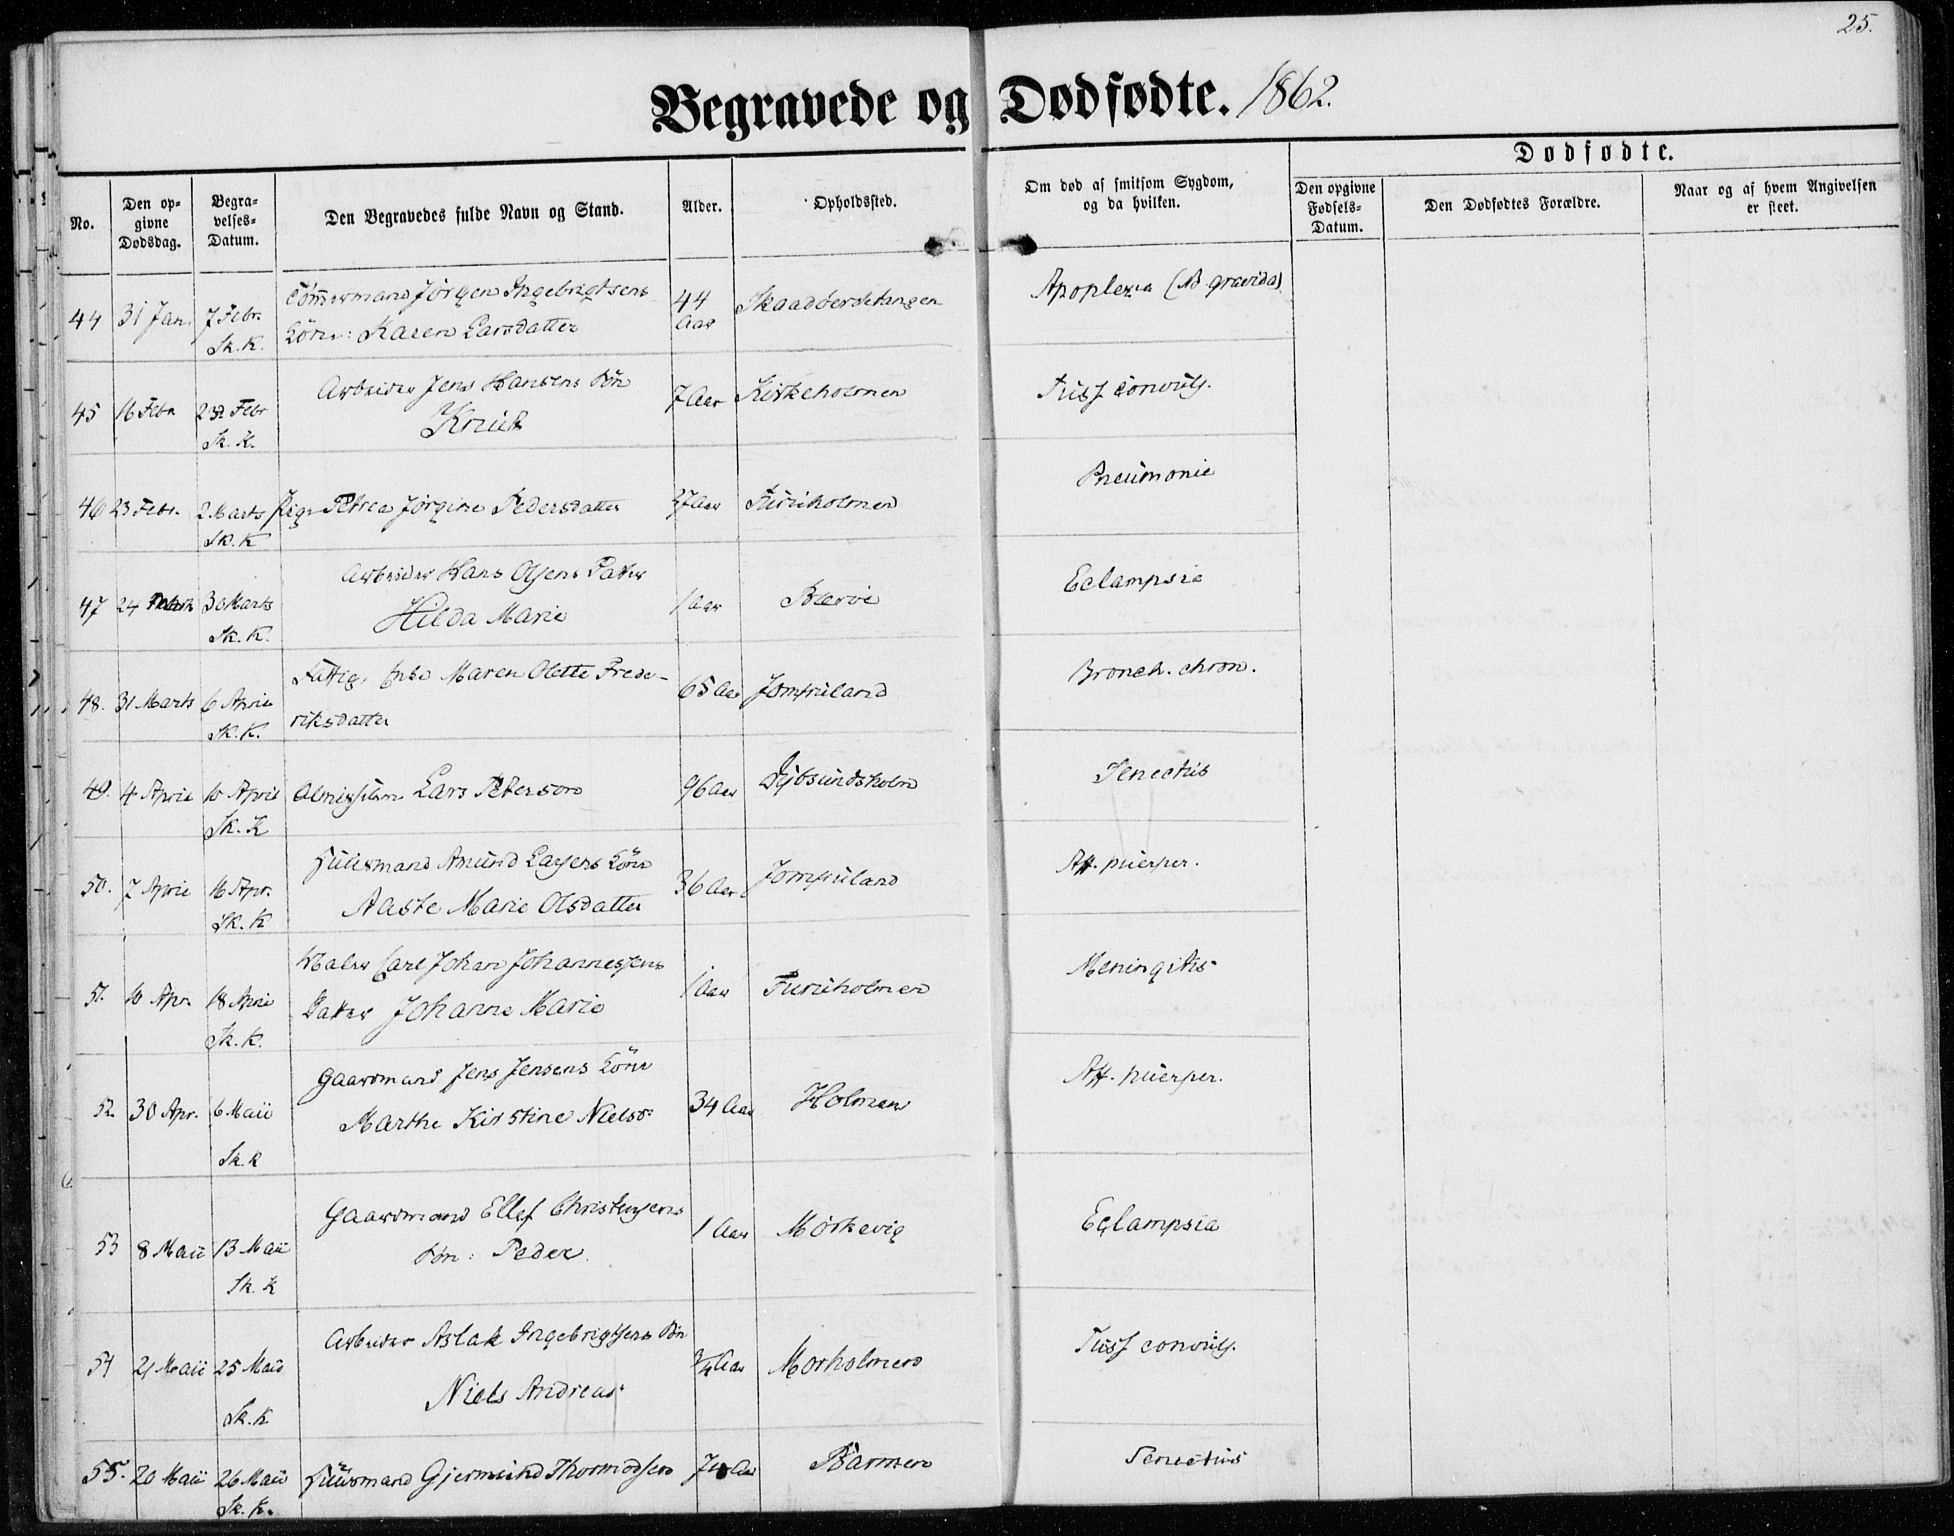 25.
Begravede og Dødfødte. 1862.
Dødfødte.
No.
Den opgivne Dødsdag.
Begravelses-Datum.
Den Begravedes fulde Navn og Stand.
Alder.
Opholdssted.
Om død af smitsom Sygdom, og da hvilken.
Den opgivne Fødsels-Datum.
Den Dødfødtes Forældre.
Naar og af hvem Angivelsen er skeet.
44 31 Jan. 7 Febr. Tömmermand Jörgen Ingebrigtsens 44 Aar Skaadöerstangen Apoplexia (NB gravida)
Sk. K. Köne: Karen Larsdatter
45 16 Febr 23 Febr Arbeider Jens Hansens Sön 7 Aar Kirkeholmen Tuss convuls.
Sk. K. Knut
46 23 Febr. 2 Marts Pige Petrea Jörgine Pedersdatter 37 Aar Furuholmen Pneumonie
Sk. K
47 24 30 Marts Arbeider Hans Olsens Datter 1 Aar Bærøe Eclampsia
Sk. K. Hilda Marie
48. 31 Marts 6 April Fattig Enke Maren Olette Frede- 65 Aar Jomfruland Bronch. chron.
Sk. K. riksdatter
49. 4 April 10 April Lars Peterson 96 Aar Dybsundsholm Senectus
Sk. K
50. 7 April 16 Apr. Huusmand Amund Larsens Köne 36 Aar Jomfruland Aff. puerper.
Sk. K Aaste Marie Olsdatter
51. 10 Apr. 18 April Maler Carl Johan Johannessens 1 Aar Furuholmen Meningitis
Sk. K. Datter Johanne Marie
52. 30 Apr. 6 Maii Gaardmand Jens Jensens Köne 34 Aar Holmen Aff. puerper.
Sk. K Marthe Kirstine Nielsd.
53 8 Maii 13 Maii Gaardmand Ellef Christensens 1 Aar Mörkevig Eclampsia
Sk. K Sön: Peder.
54 21 Maii 25 Maii Arbeider Aslak Ingebrigtsens Sön 3/4 Aar Morholmen Tuss convuls.
Sk. K Niels Andreas
55. 20 Maii 26 Maii Huusmand Gjermund Thormodsen Aar Barmen Senectus
Sk. K.